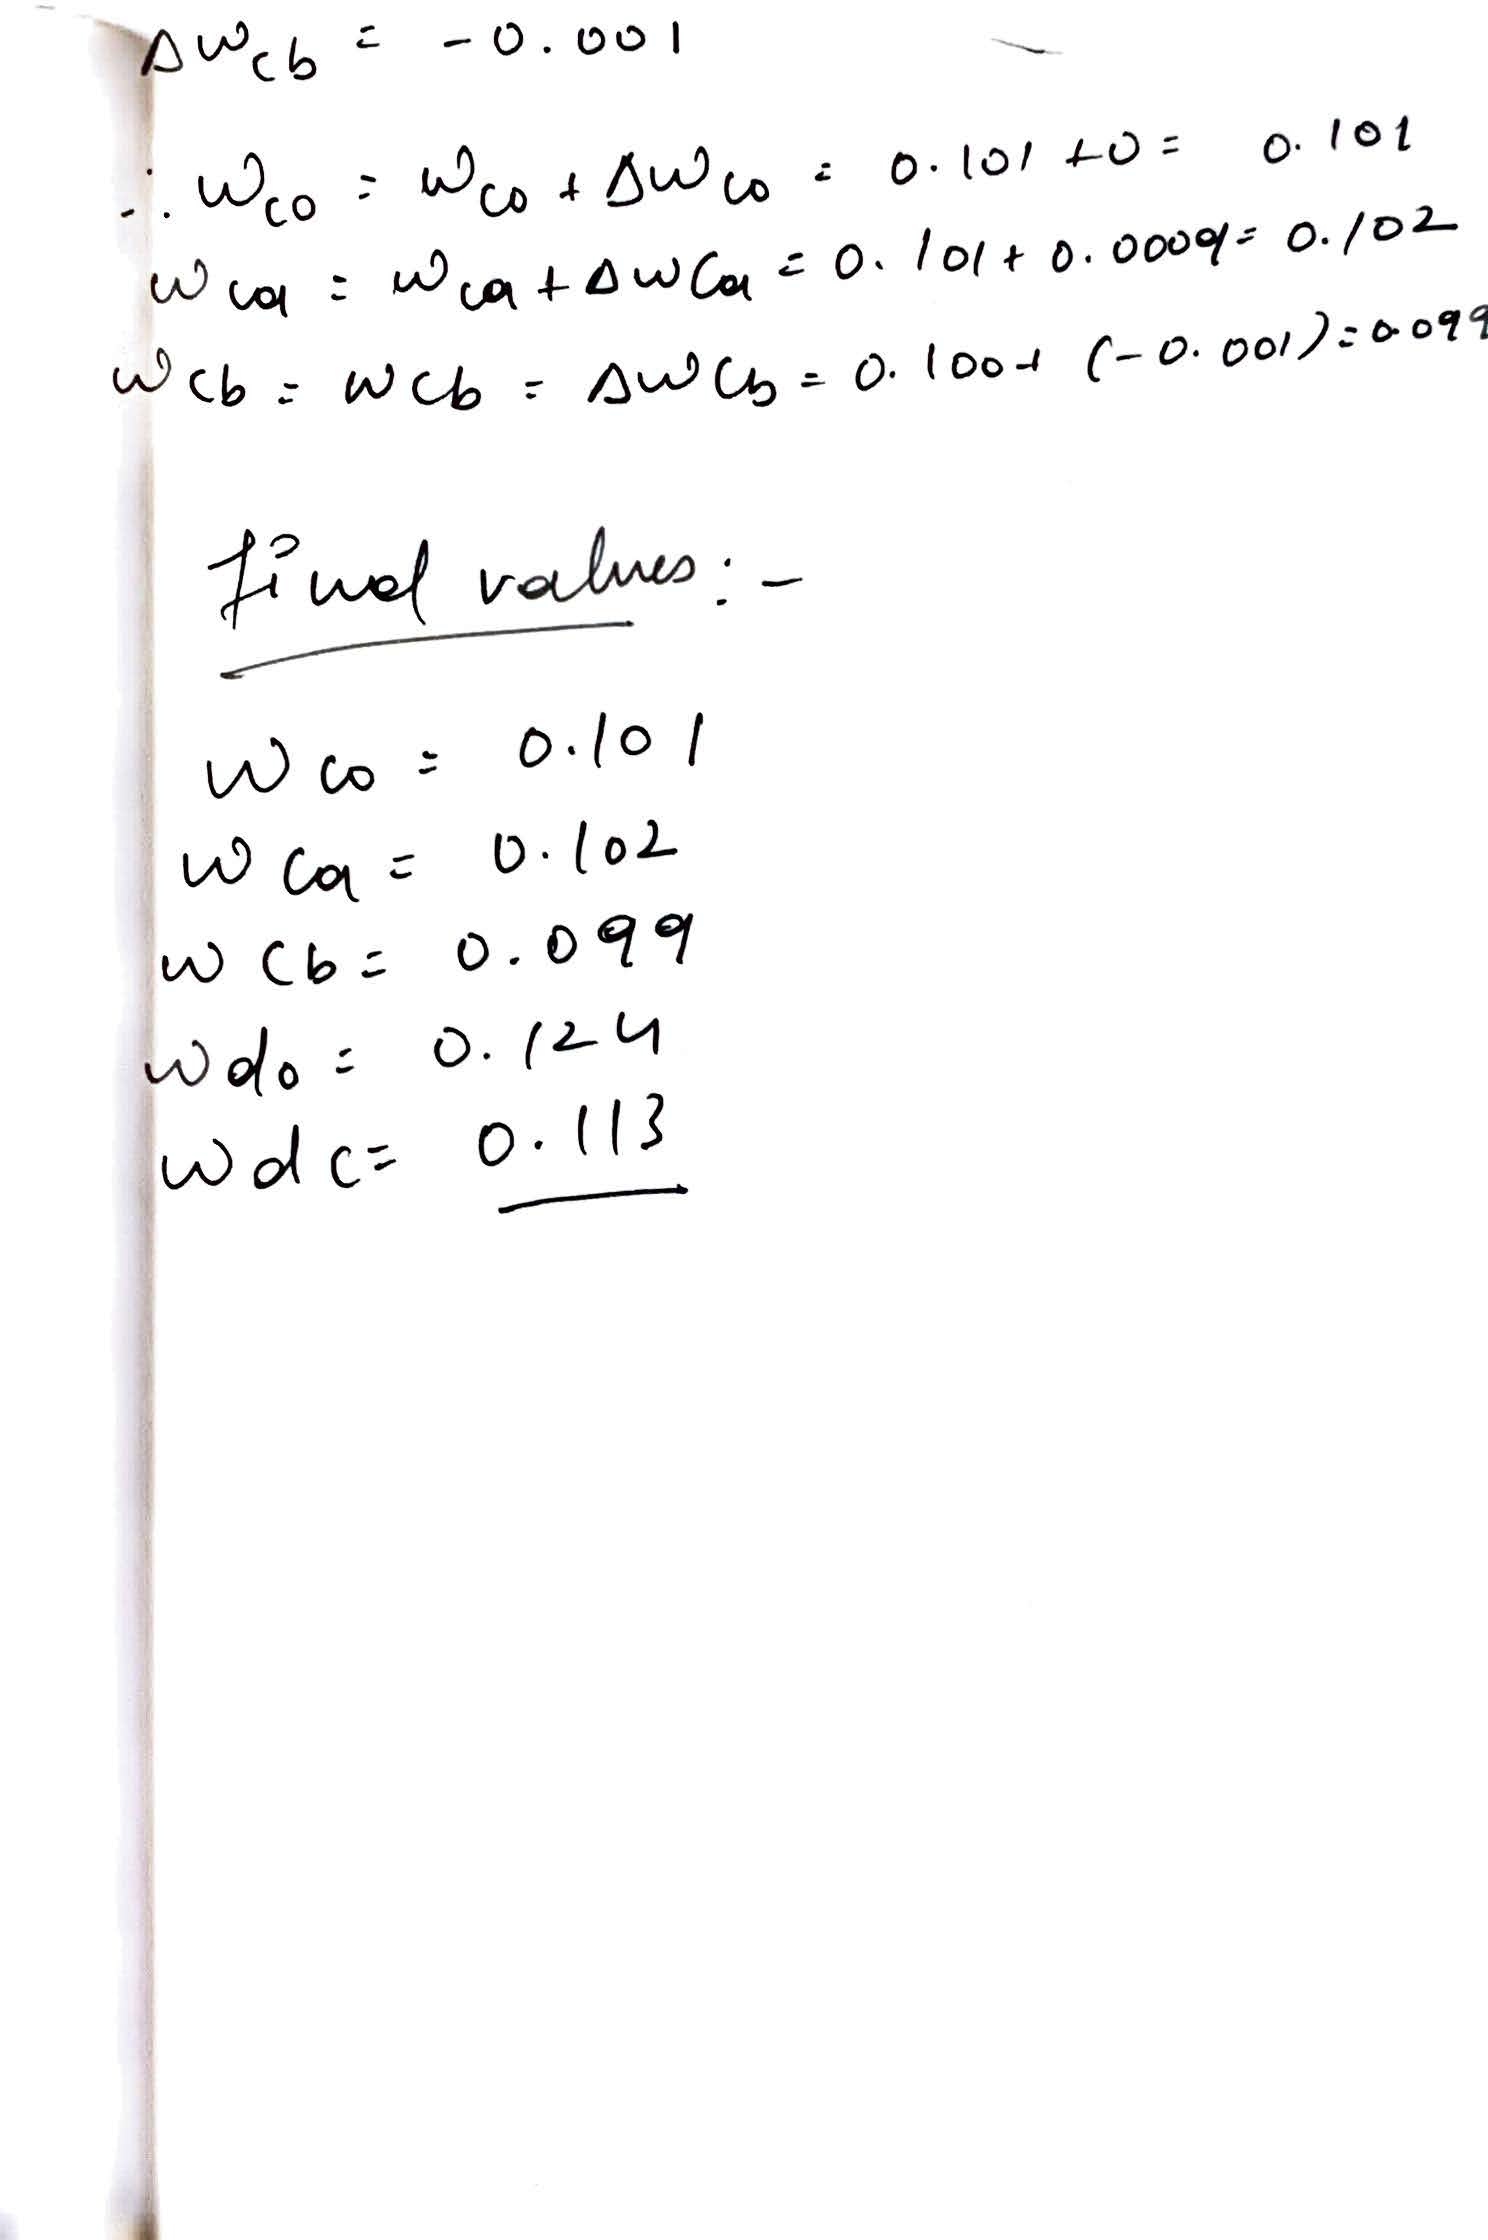 Δw_cb = -0.001
∴ w_co = w_co + Δw_co = 0.101 + 0 = 0.101
w_ca = w_ca + Δw_ca = 0.101 + 0.0009 = 0.102
w_cb = w_cb = Δw_cb = 0.100 + (-0.001) = 0.099
Final values :-
w_co = 0.101
w_ca = 0.102
w_cb = 0.099
w_do = 0.124
w_dc = 0.113